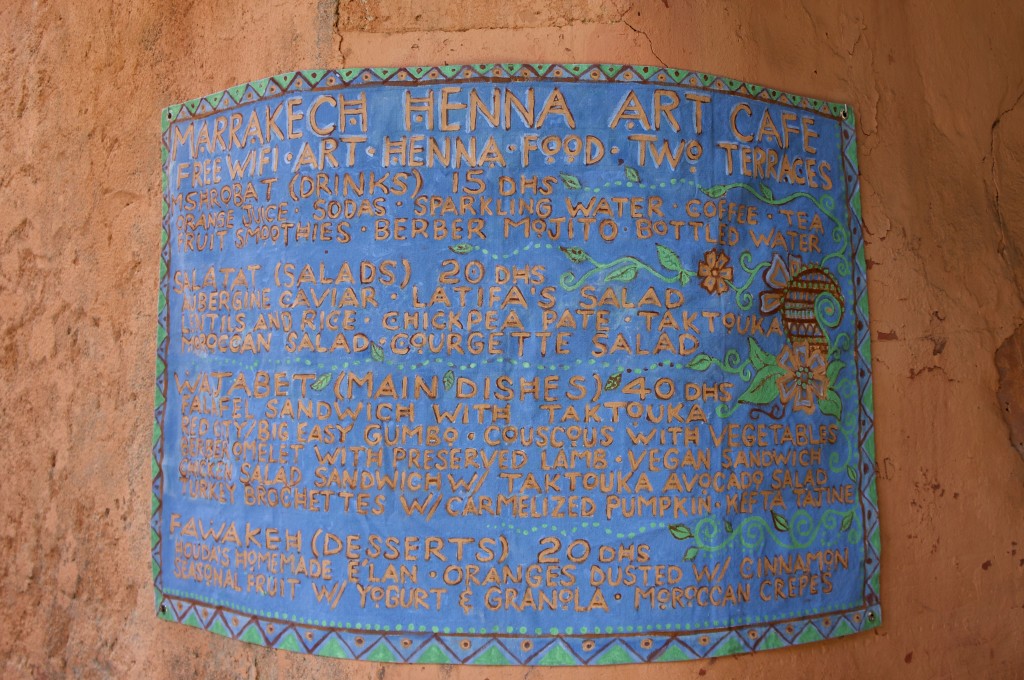 MARRAKECH HENNA ART CAFE
FREE WIFI · ART · HENNA · FOOD · TWO TERRACES
MSHROBAT (DRINKS) 15 DHS
ORANGE JUICE · SODAS · SPARKLING WATER · COFFEE · TEA
FRUIT SMOOTHIES · BERBER MOJITO · BOTTLED WATER
SALATAT (SALADS) 20 DHS
AUBERGINE CAVIAR · LATIFA'S SALAD
AND RICE · CHICKPEA PATE · TAKTOUKA
MOROCCAN SALAD · COURGETTE SALAD
WATABET (MAIN DISHES) 40 DHS
SANDWICH WITH TAKTOUKA
BIG EASY GUMBO · COUSCOUS WITH VEGETABLES
BERBER OMELET WITH PRESERVED LAMB · VEGAN SANDWICH
SALAD SANDWICH W/ TAKTOUKA AVOCADO SALAD
TURKEY BROCHETTES W/ CARMELIZED PUMPKIN · KEFTA TAJINE
FAWAKEH (DESSERTS) 20 DHS
HOUDA'S HOMEMADE E'LAN · ORANGES DUSTED W/ CINNAMON
SEASONAL FRUIT W/ YOGURT & GRANOLA · MOROCCAN CREPES